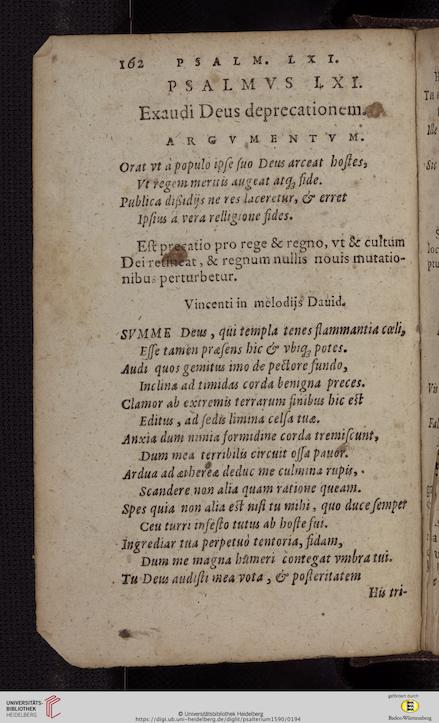 162 PSALM. LXI.
PSALMVS LXI.
Exaudi Deus deprecationem.
ARGVMENTVM.
Orat vt à populo ipse suo Deus arceat hostes,
Vt regem meritis augeat atq; fide.
Publica dissidijs ne res laceretur, & erret
Ipsius à vera relligione fides.
Est precatio pro rege & regno, vt & cultum
Dei retineat, & regnum nullis nouis mutatio-
nibus perturbetur.
Vincenti in melodijs Dauid.
SVMME Deus, qui templa tenes flammantia cœli,
Esse tamen præsens hic & vbiq; potes.
Audi quos gemitus imo de pectore fundo,
Inclina ad timidas corda benigna preces.
Clamor ab extremis terrarum finibus hic est
Editus, ad sedis limina celsa tuæ.
Anxia dum nimia formidine corda tremiscunt,
Dum mea terribilis circuit ossa pauor.
Ardua ad æthereæ deduc me culmina rupis,
Scandere non alia quam ratione queam.
Spes quia non alia est nisi tu mihi, quo duce semper
Ceu turri infesto tutus ab hoste fui.
Ingrediar tua perpetuò tentoria, fidam,
Dum me magna humeri contegat vmbra tui.
Tu Deus audisti mea vota, & posteritatem
His tri-
UNIVERSITÄTS-
BIBLIOTHEK
HEIDELBERG
© Universitätsbibliothek Heidelberg
https://digi.ub.uni-heidelberg.de/diglit/psalterium1590/0194
gefördert durch
Baden-Württemberg